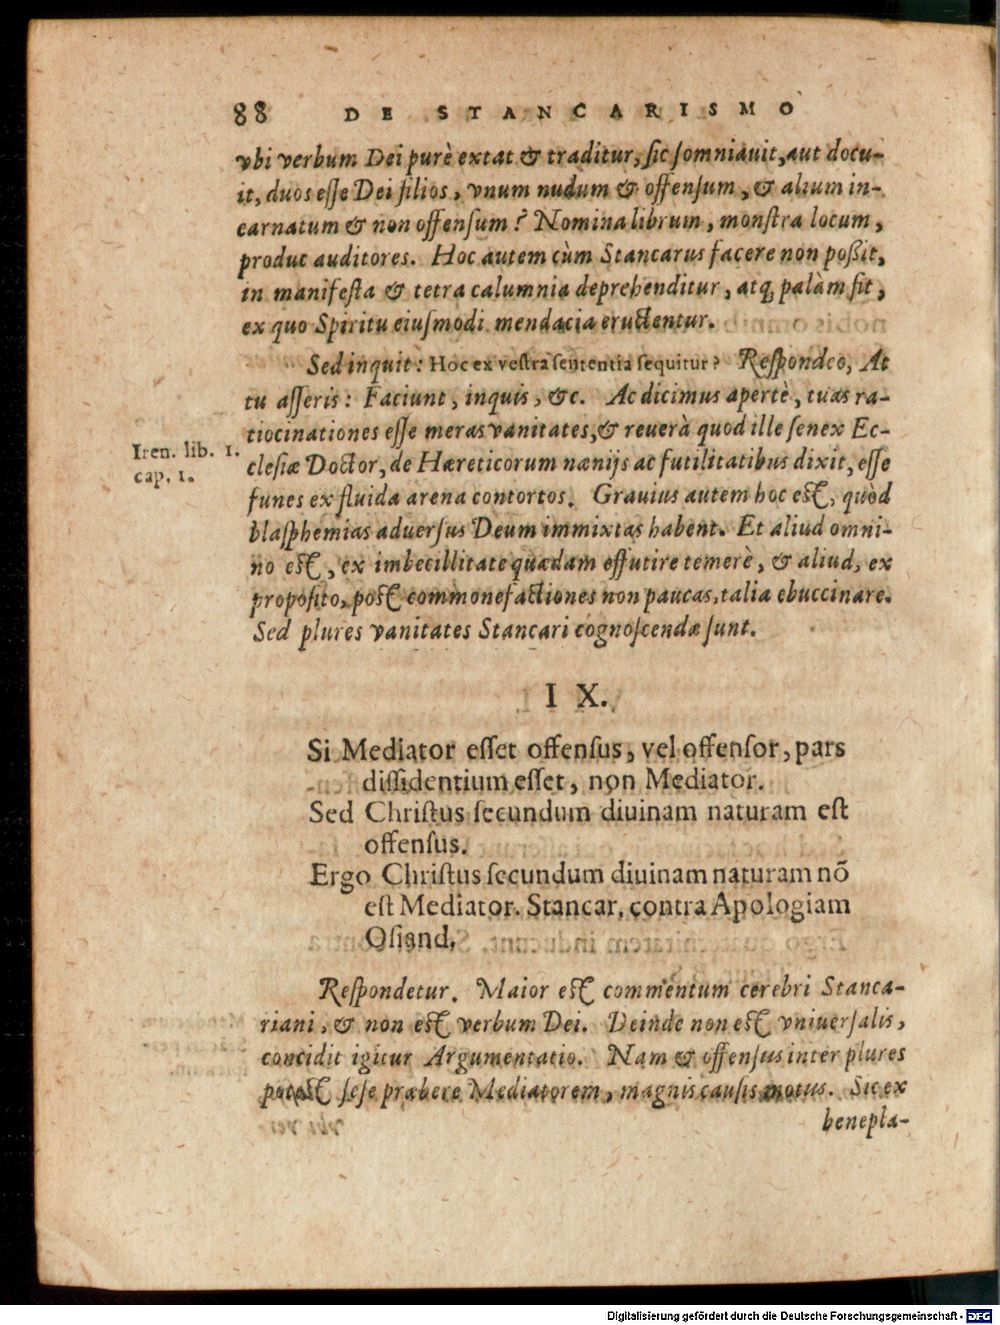 88 DE STANCARISMO
vbi verbum Dei purè extat & traditur, sic somniauit, aut docu-
it, duos esse Dei filios, vnum nudum & offensum, & alium in-
carnatum & non offensum? Nomina librum, monstra locum,
produc auditores. Hoc autem cùm Stancarus facere non poßit,
in manifesta & tetra calumnia deprehenditur, atq; palàm fit,
ex quo Spiritu eiusmodi mendacia eructentur.
Sed inquit: Hoc ex vestra sententia sequitur? Respondeo, At
tu asseris: Faciunt, inquis, &c. Ac dicimus apertè, tuas ra-
tiocinationes esse meras vanitates, & reuerà quod ille senex Ec-
Iren. lib. 1.
cap. 1.
clesiæ Doctor, de Hæreticorum nænijs ac futilitatibus dixit, esse
funes ex fluida arena contortos. Grauius autem hoc est, quòd
blasphemias aduersus Deum immixtas habent. Et aliud omni-
no est, ex imbecillitate quædam effutire temerè, & aliud, ex
proposito, post commonefactiones non paucas, talia ebuccinare.
Sed plures vanitates Stancari cognoscendæ sunt.
IX.
Si Mediator esset offensus, vel offensor, pars
dissidentium esset, non Mediator.
Sed Christus secundum diuinam naturam est
offensus.
Ergo Christus secundum diuinam naturam nõ
est Mediator. Stancar. contra Apologiam
Osiand.
Respondetur. Maior est commentum cerebri Stanca-
riani, & non est verbum Dei. Deinde non est vniuersalis,
concidit igitur Argumentatio. Nam & offensus inter plures
potest sese præbere Mediatorem, magnis causis motus. Sic ex
benepla-
Digitalisierung gefördert durch die Deutsche Forschungsgemeinschaft - DFG